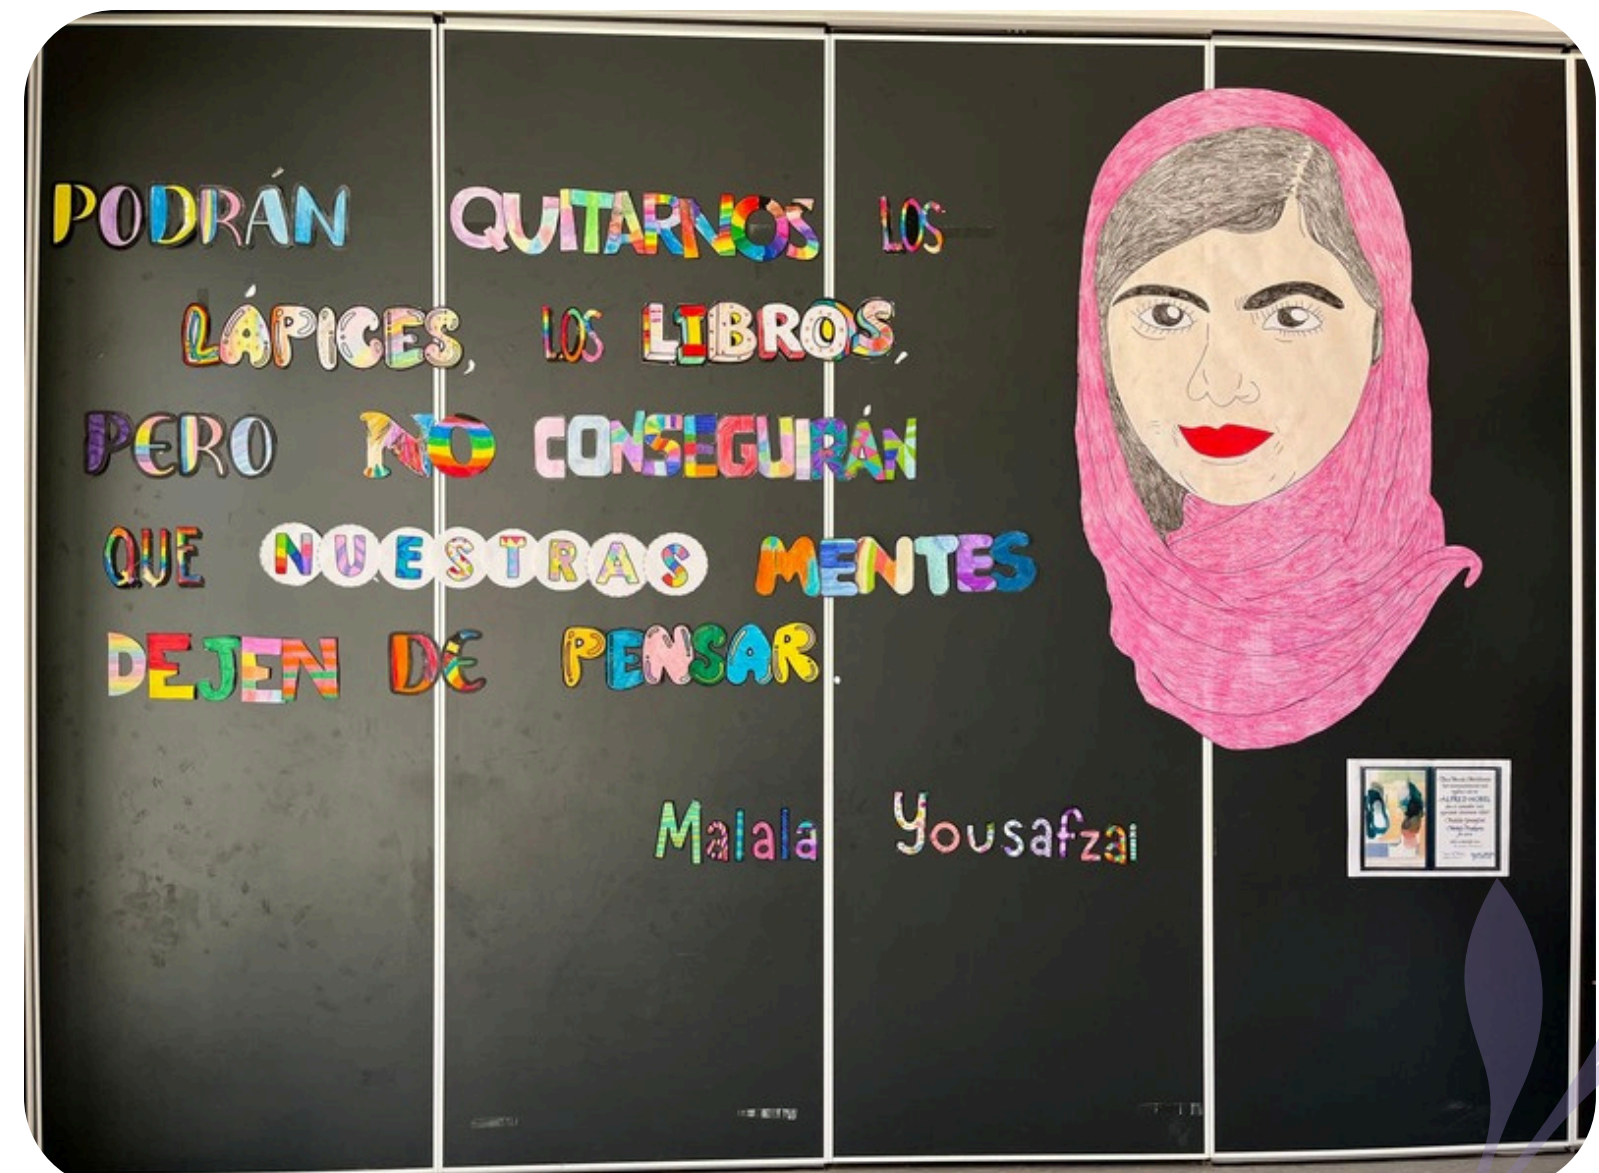 PODRÁN QUITARNOS LOS
LÁPICES, LOS LIBROS,
PERO NO CONSEGUIRÁN
QUE NUESTRAS MENTES
DEJEN DE PENSAR.
Malala Yousafzai
ALFRED NOBEL